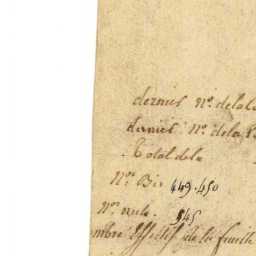 dernier N.º de la
dernier N.º de la
Total de la
N.ºs Bis 449. 450
N.º nuls. 545
ombre Effectif de la feuille